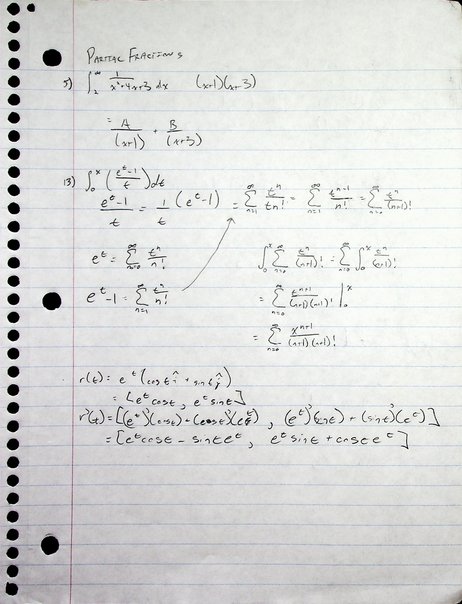 PARTIAL FRACTIONS
5) ∫₂^∞ 1/(x²+4x+3) dx (x+1)(x+3)
= A/(x+1) + B/(x+3)
13) ∫₀^x ((e^t-1)/t) dt
(e^t-1)/t = 1/t (e^t-1) = ∞Σn=1 t^n/(t n!) = ∞Σn=1 t^(n-1)/n! = ∞Σn=0 t^n/(n+1)!
e^t = ∞Σn=0 t^n/n! ∫₀^x ∞Σn=0 t^n/(n+1)! = ∞Σn=0 ∫₀^x t^n/(n+1)!
e^t-1 = ∞Σn=1 t^n/n! = ∞Σn=0 t^(n+1)/((n+1)(n+1)!) |₀^x
= ∞Σn=0 x^(n+1)/((n+1)(n+1)!)
r(t) = e^t (cost î + sint ĵ)
= [e^t cost, e^t sint]
r'(t) = [(e^t)'(cost) + (cost)'(e^t), (e^t)'(sint) + (sint)'(e^t)]
= [e^t cost - sint e^t, e^t sint + cost e^t]